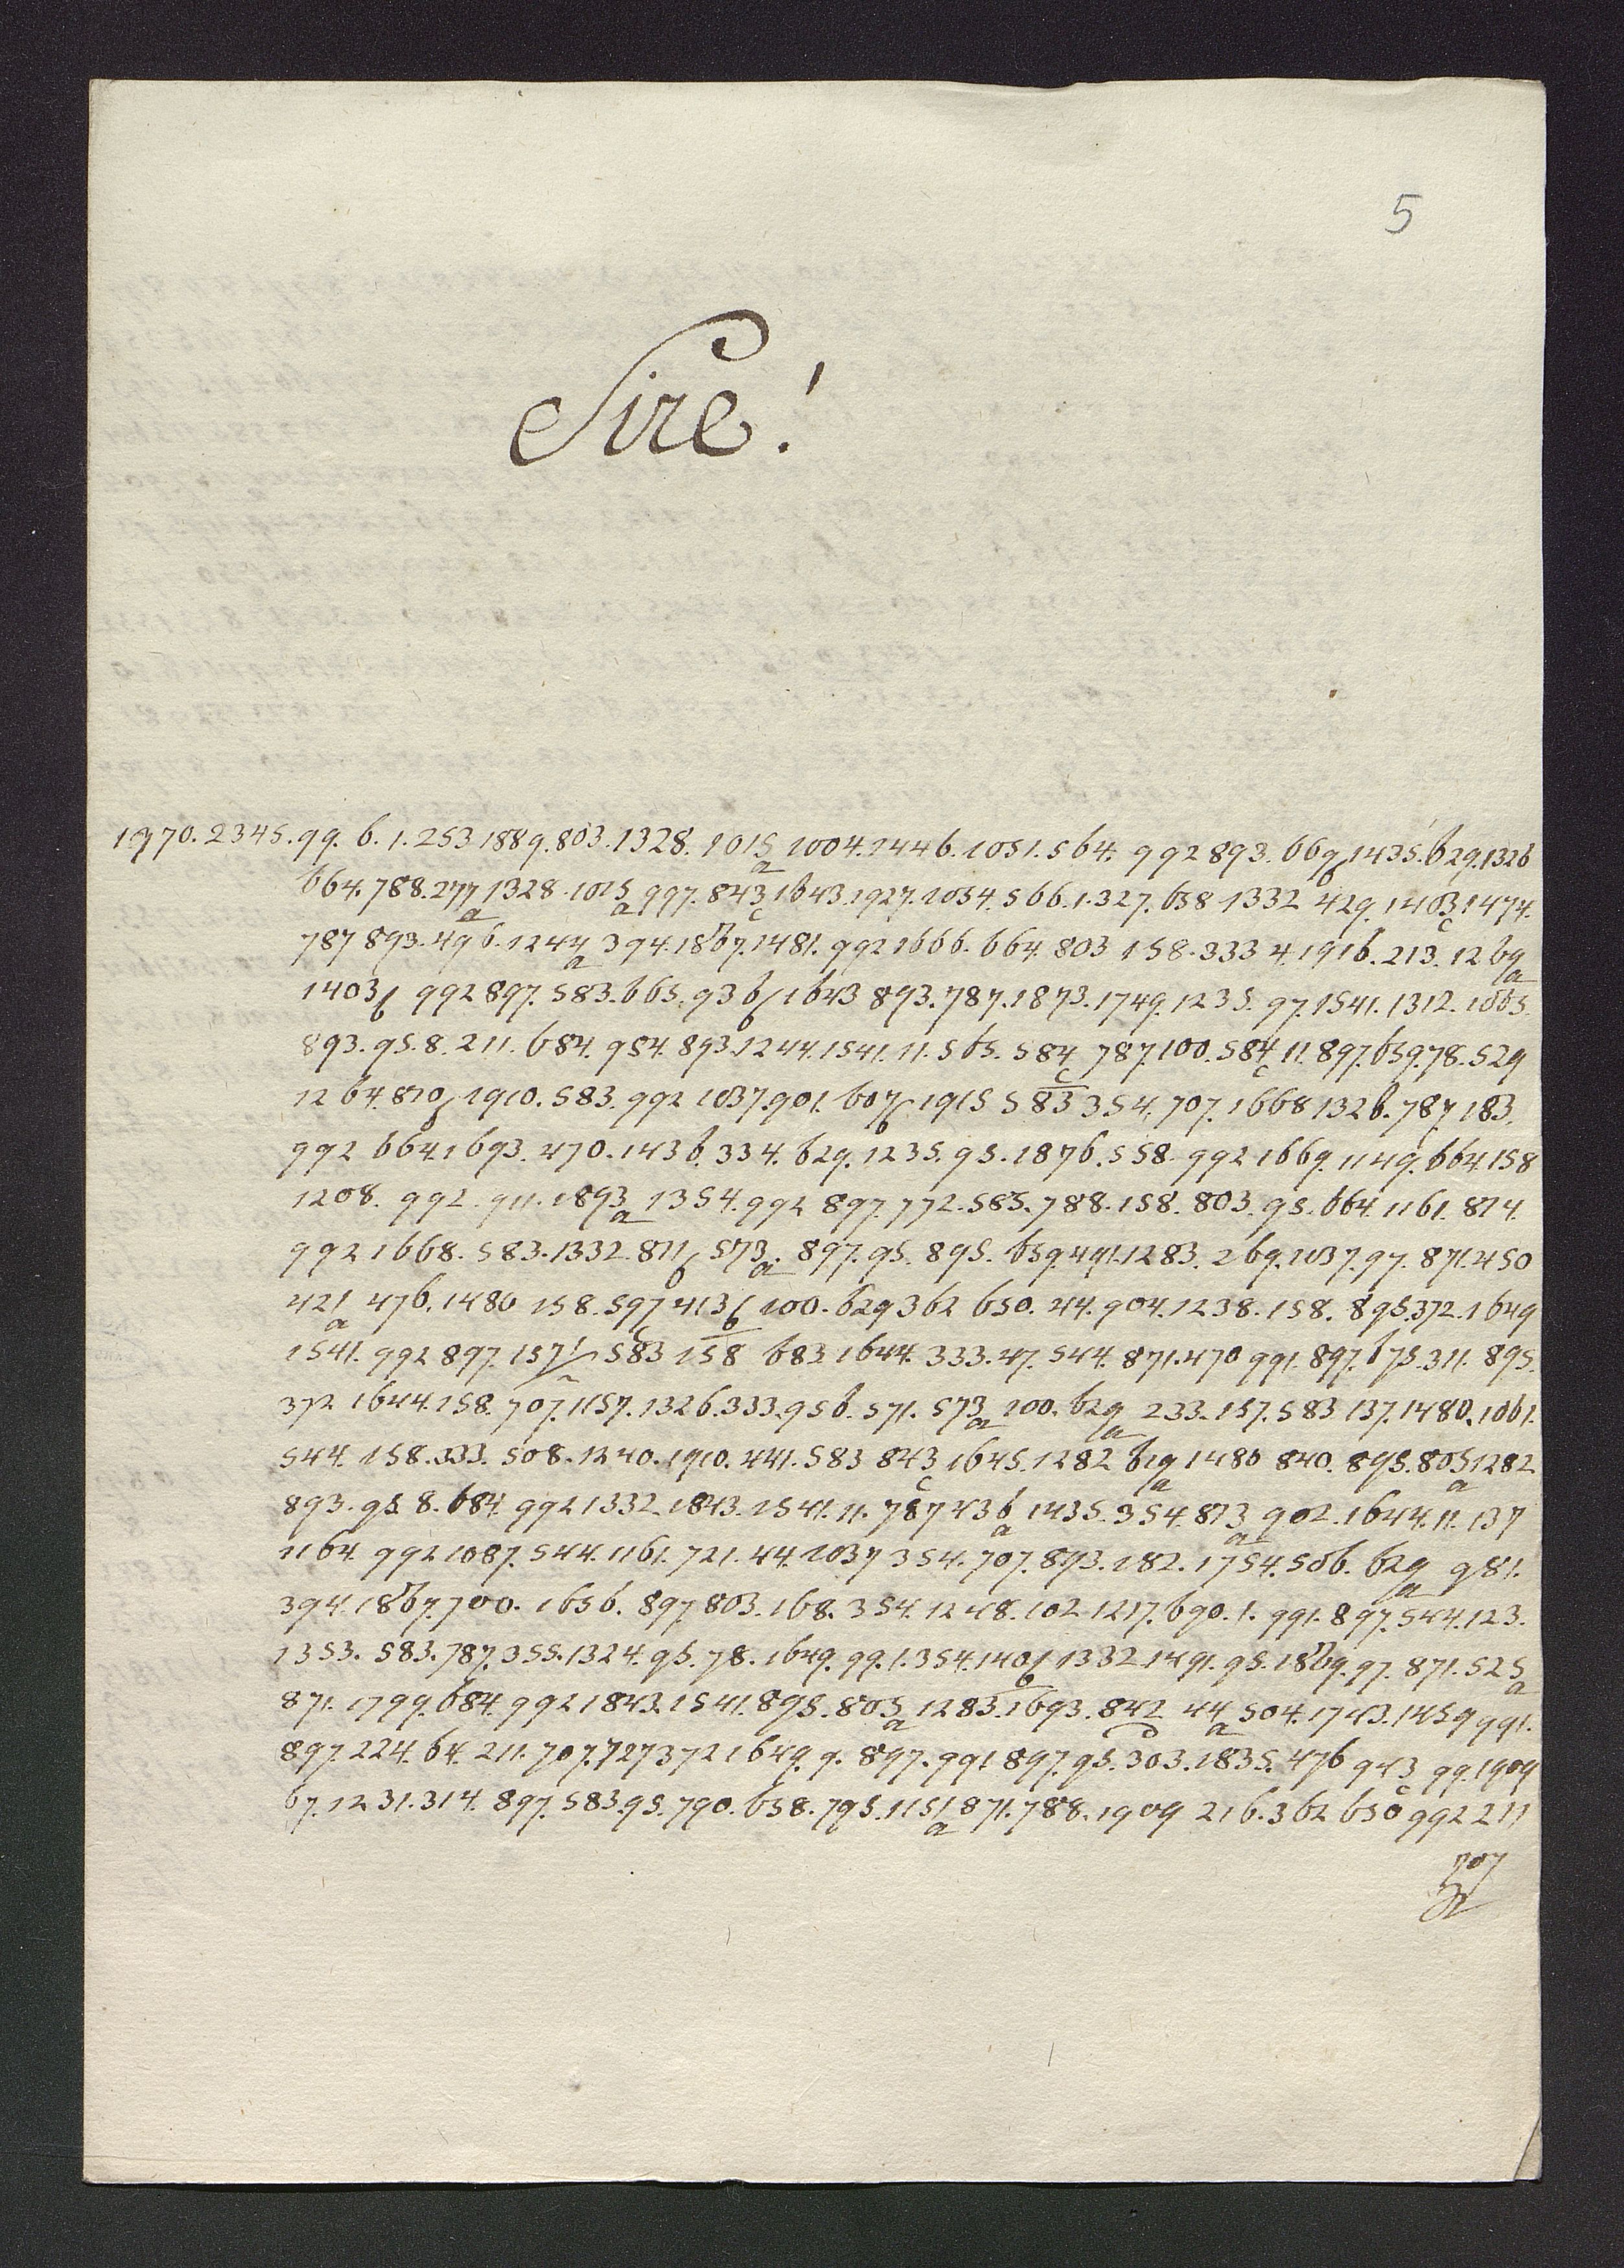 5
Sire!
1970. 2345. 99. 6. 1. 253 1889. 803. 1328. 1015a 1004. 1446. 1051. 564. 992 893. 669b 1435. 629. 1326
664. 788. 277a 1328. 1015a 997. 843c 1643. 1927. 1054. 566. 1. 327. 658 1332 429. 1403c 1474.
787 893. 496. 1244a 394. 1867. 1481. 992 1666. 664. 803 158. 333 4. 1916. 213. 1269a
1403b 992 897. 583. 665. 936b 1643 893. 787. 1873. 1749. 1235. 97. 1541. 1312. 1065.
893. 95. 8. 211. 684. 954. 893. 1244. 1541. 11. 565. 584c 787. 100. 584c 11. 897. 659. 78. 529
1264. 820b 1910. 583. 992 1037. 901. 607b 1915 583 354. 707. 1668 1326. 787. 183.
992 664. 1693. 470. 1436. 334. 629. 1235. 95. 1876. 558. 992 1669. 1149. 664. 158
1208. 992. 911. 1893a 1354. 992 897. 772. 585. 788. 158. 803. 95. 664. 1161. 874.
992 1668. 583. 1332. 871b 573a. 897. 95. 895. 659. 491. 1283. 269. 1037. 97. 871. 450
421a 476. 1480 158. 597c 413b 100. 629 362 650. 44. 904. 1238. 158. 895. 372. 1649
1541. 992 897. 157 583 158 683. 1644. 333. 47. 544. 871. 470 991. 897. 675. 311. 895.
372 1644. 158. 707. 1157. 1326. 333. 956. 571. 573a 100. 629a 233. 157. 583 137. 1480. 1061.
544. 158. 333. 508. 1240. 1910. 441. 583 843c 1645. 1282 619a 1480 840. 895. 805a 1282
893. 95. 8. 684. 992 1332. 1843. 1541. 11. 787 436a 1435. 354. 873a 902. 1644. 11. 137
1164. 992 1087. 544. 1161. 721. 44. 1037 354. 707. 893. 182. 1754. 506. 629a 981.
394. 1867. 700. 1656. 897 803. 168. 354. 1248. 102 1217. 690. 1. 991. 897. 544. 123.
1353. 583. 787. 355. 1324. 95. 78. 1649. 99. 1. 354. 1401b 1332. 1491. 95. 1869. 97. 871. 525a
871. 1799. 684. 992 1843. 1541. 895. 805a 1283. 1693. 842 44a 504. 1743. 1459 991.
897 224. 64. 211. 707. 727 372 1649. 9. 897. 991 897. 95. 303. 1835. 476 943c 99. 1909
67. 1231. 314. 897. 583. 95. 790. 658. 795. 1151a 871. 788. 1909 216. 362 650 992 211
707